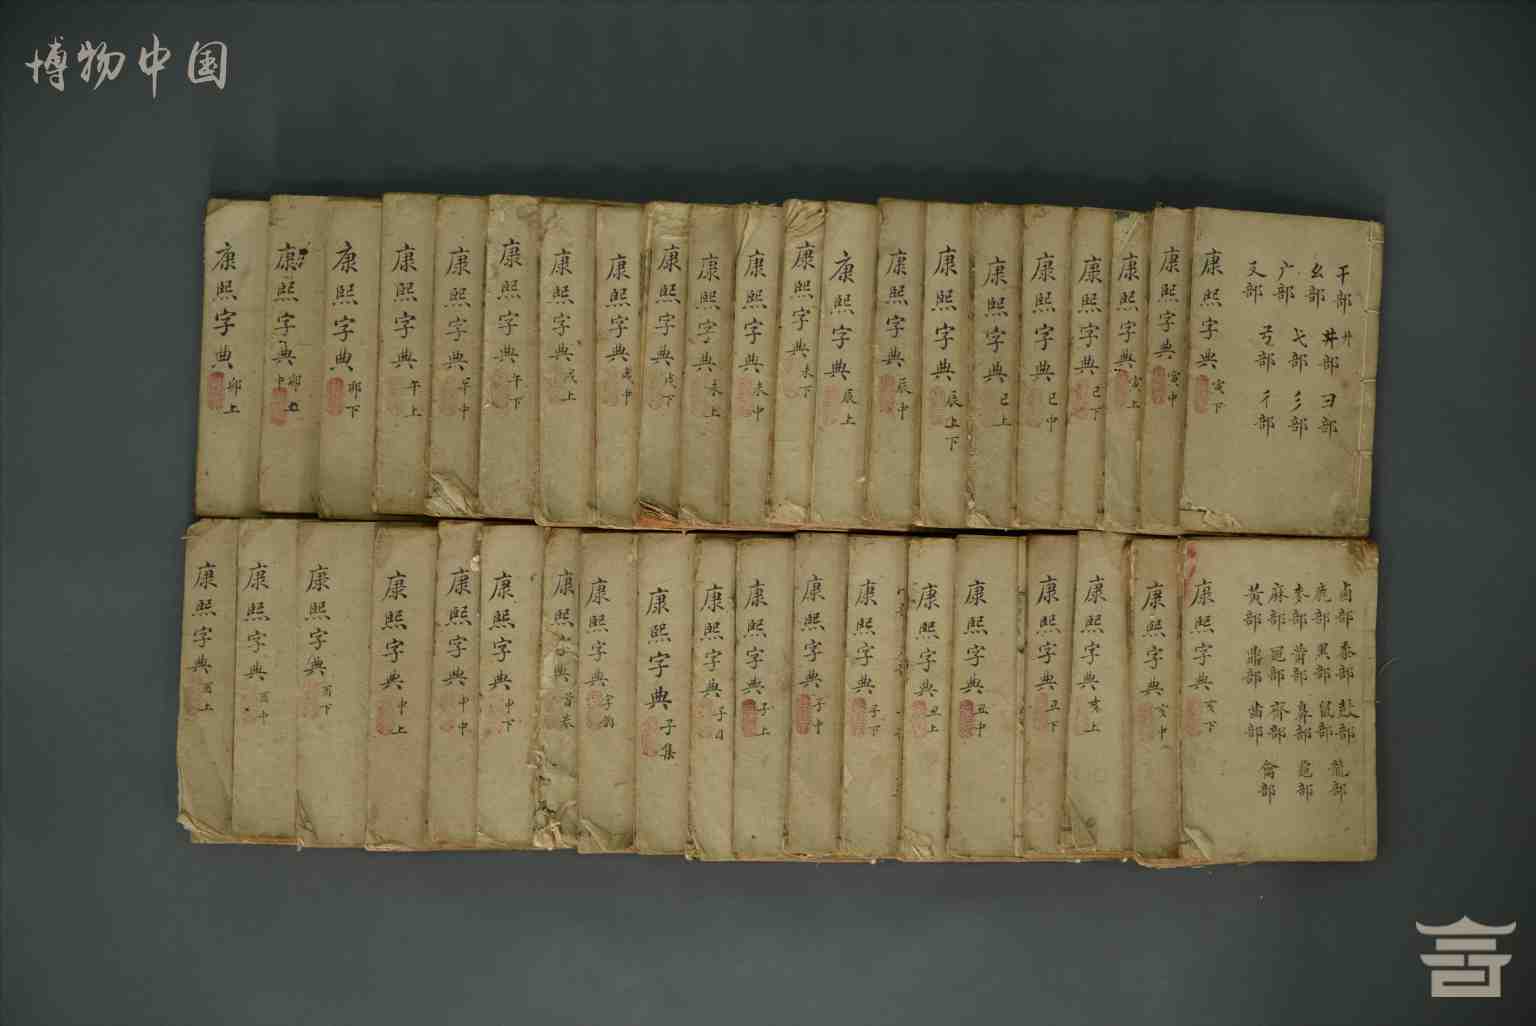 博物中国
康熙字典 卯上
康熙字典 卯中
康熙字典 卯下
康熙字典 午上
康熙字典 午中
康熙字典 午下
康熙字典 戌上
康熙字典 戌中
康熙字典 戌下
康熙字典 未上
康熙字典 未中
康熙字典 未下
康熙字典 辰上
康熙字典 辰中
康熙字典 辰下
康熙字典 巳上
康熙字典 巳中
康熙字典 巳下
康熙字典 寅上
康熙字典 寅中
康熙字典 寅下
干部 井部 彐部
幺部 弋部 彡部
广部 弓部 彳部
廴部
康熙字典 酉上
康熙字典 酉中
康熙字典 酉下
康熙字典 申上
康熙字典 申中
康熙字典 申下
康熙字典 首卷
康熙字典 字韵
康熙字典 子集
康熙字典
康熙字典 子上
康熙字典 子中
康熙字典 子下
康熙字典 丑上
康熙字典 丑中
康熙字典 丑下
康熙字典 亥上
康熙字典 亥中
康熙字典 亥下
鹵部 黍部 鼓部 龍部
鹿部 黑部 鼠部
麥部 黹部 鼻部 龜部
麻部 黽部 齊部
黃部 鼎部 齒部 龠部